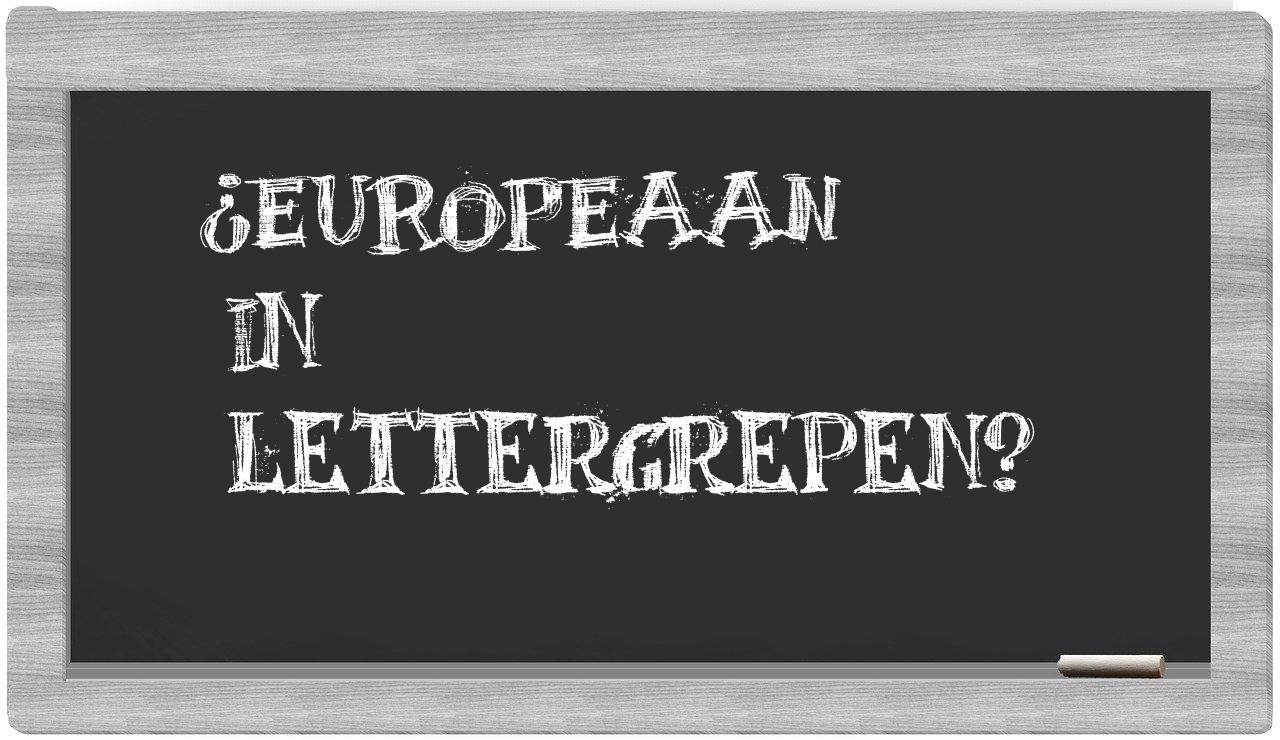 ¿EUROPEAAN
IN
LETTERGREPEN?